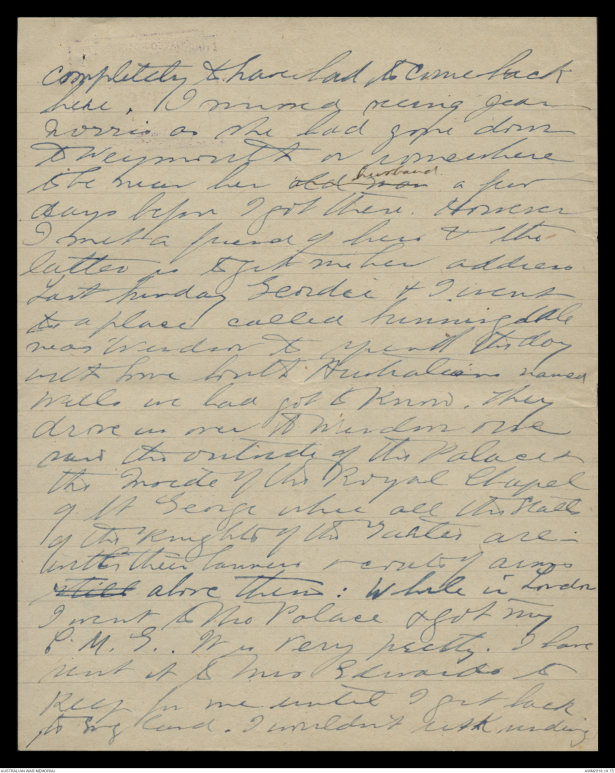 completely & have had to come back
here. I missed seeing Jean
Norris as she had gone down
to Weymouth or somewhere
to be near her old man husband a few
days before I got there. However
I met a friend of hers & the
latter is to get me her address
Last Sunday Geordie & I went
to a place called Sunningdale
near Windsor to spend the day
with some South Australians named
Wells we had got to know. They
drove us over to Windsor & we
saw the outside of the Palace &
the inside of the Royal Chapel
of St George where all the Stalls
of the Knights of the Garter are
with their banners & coats of arms
still above them: While in London
I went to the Palace & got my
C. M. G.. It is very pretty. I have
sent it to Mrs Edwards to
keep for me until I get back
to England. I wouldn't risk sending
AUSTRALIAN WAR MEMORIAL